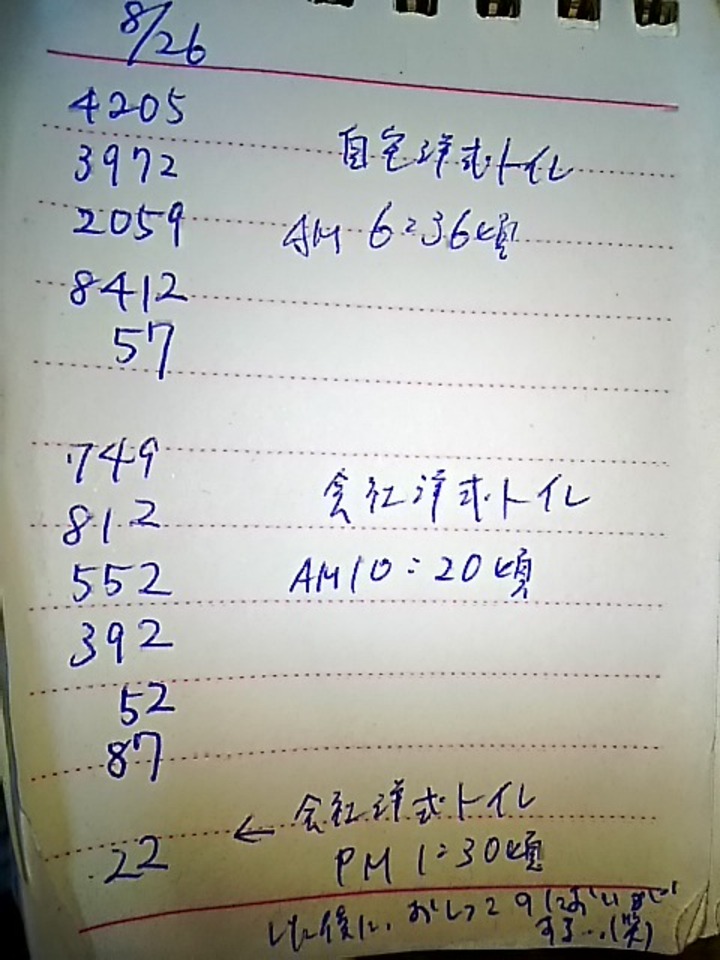 8/26
4205
3972
自宅洋式トイレ
2059
AM 6:36頃
8412
57
749
812
会社洋式トイレ
552
AM10:20頃
392
52
87
← 会社洋式トイレ
22
PM 1:30頃
した後に、おしっこのにおいが
する...(笑)